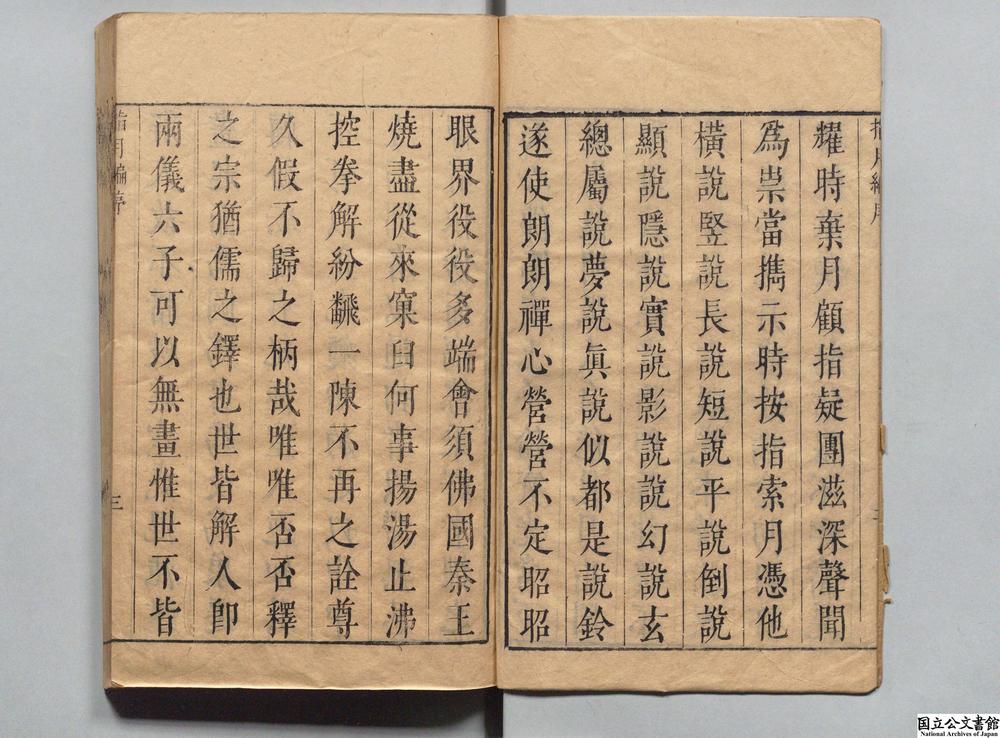 耀時棄月顧指疑團滋深聲聞
爲祟當攜示時按指索月憑他
橫說竪說長說短說平說倒說
顯說隱說實說影說說幻說玄
總屬說夢說眞說似都是說鈴
遂使朗朗禪心營營不定昭昭
眼界役役多端會須佛國秦王
燒盡從來窠臼何事揚湯止沸
控拳解紛飜一陳不再之詮尊
久假不歸之柄哉唯唯否否釋
之宗猶儒之鐸也世皆解人卽
兩儀六子可以無畫惟世不皆
指月編序
三
国立公文書館
National Archives of Japan